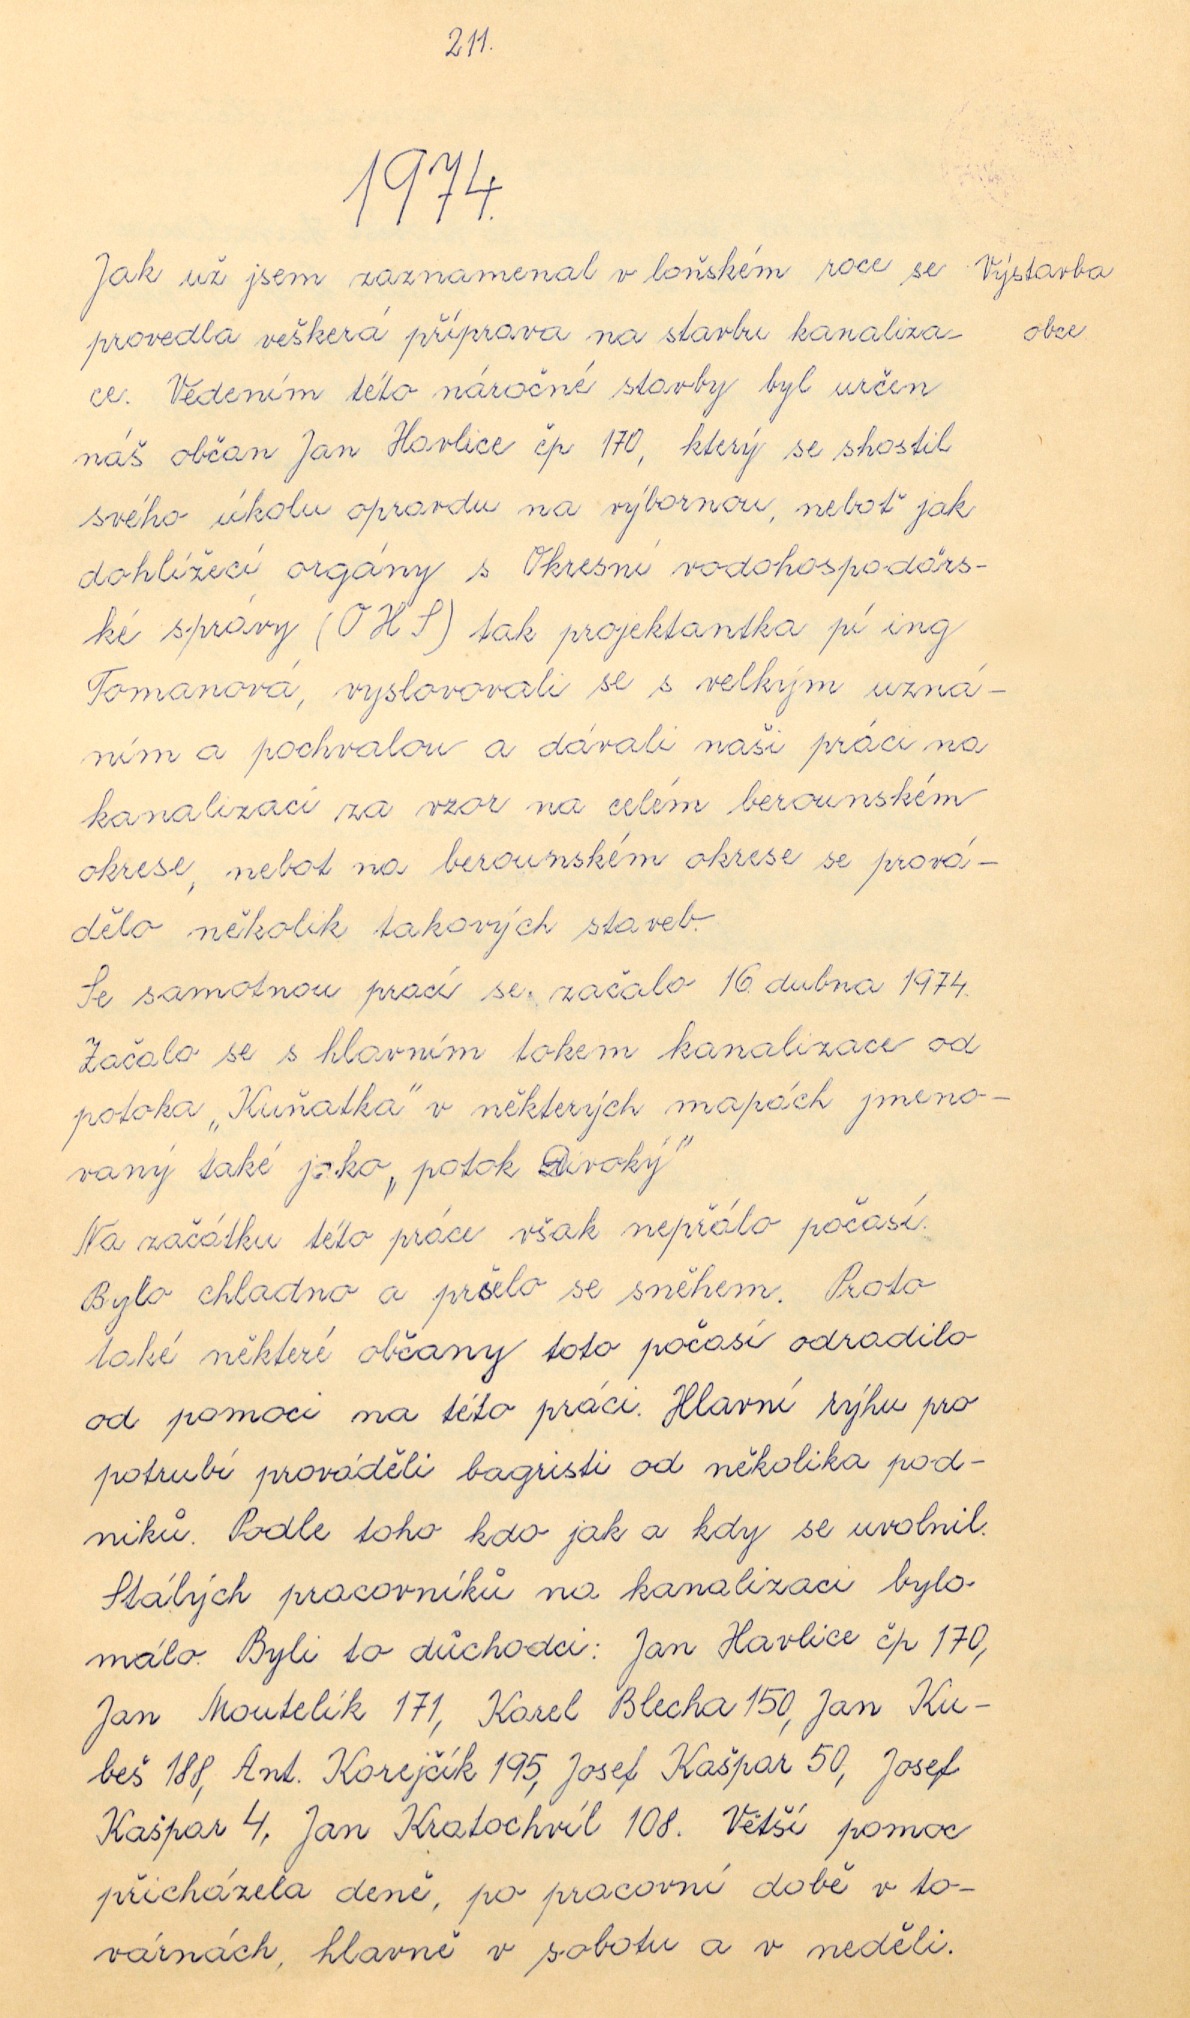 211.
1974.
Jak už jsem zaznamenal v loňském roce se Výstavba
provedla veškerá příprava na stavbu kanaliza- obce
ce. Vedením této náročné stavby byl určen
náš občan Jan Havlice čp 170, který se shostil
svého úkolu opravdu na výbornou, neboť jak
dohlížecí orgány s Okresní vodohospodářs-
ké správy (OHS) tak projektantka pí ing
Tomanová, vyslovovali se s velkým uzná-
ním a pochvalou a dávali naši práci na
kanalizaci za vzor na celém berounském
okrese, nebot na berounském okrese se prová-
dělo několik takových staveb.
Se samotnou prací se začalo 16. dubna 1974.
Začalo se s hlavním tokem kanalizace od
potoka „Kuňatka" v některých mapách jmeno-
vaný také jako „potok Divoký"
Na začátku této práce však nepřálo počasí.
Bylo chladno a pršelo se sněhem. Proto
také některé občany toto počasí odradilo
od pomoci na této práci. Hlavní rýhu pro
potrubí prováděli bagristi od několika pod-
niků. Podle toho kdo jak a kdy se uvolnil.
Stálých pracovníků na kanalizaci bylo
málo. Byli to důchodci: Jan Havlice čp 170,
Jan Moutelík 171, Karel Blecha 150, Jan Ku-
beš 188, Ant. Korejčík 195, Josef Kašpar 50, Josef
Kašpar 4, Jan Kratochvíl 108. Větší pomoc
přicházela deně, po pracovní době v to-
várnách, hlavně v sobotu a v neděli.